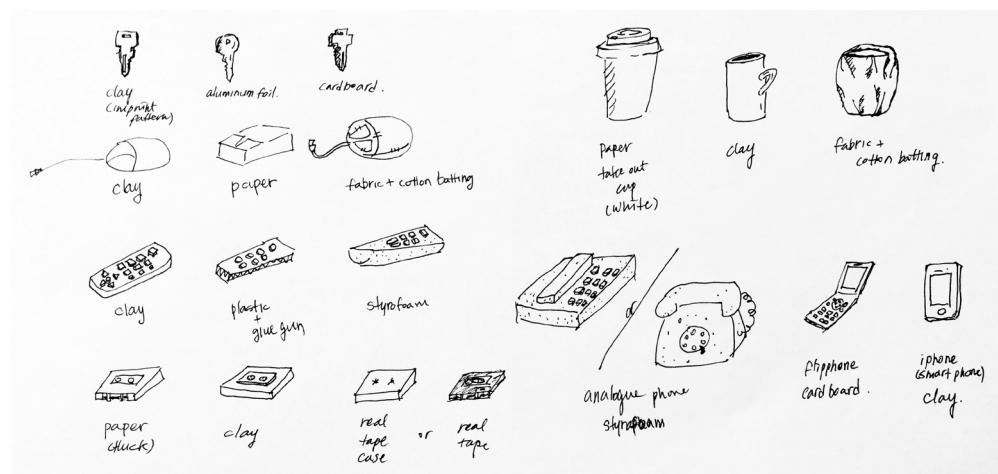 clay
(imprint
pattern)
aluminum foil.
cardboard.
clay
paper
fabric + cotton batting
clay
plastic
+
glue gun
styrofoam
paper
(thick)
clay
real
tape
case
or
real
tape
paper
take out
cup
(white)
clay
fabric +
cotton batting.
or
analogue phone
styrofoam
flipphone
cardboard.
iphone
(smart phone)
clay.